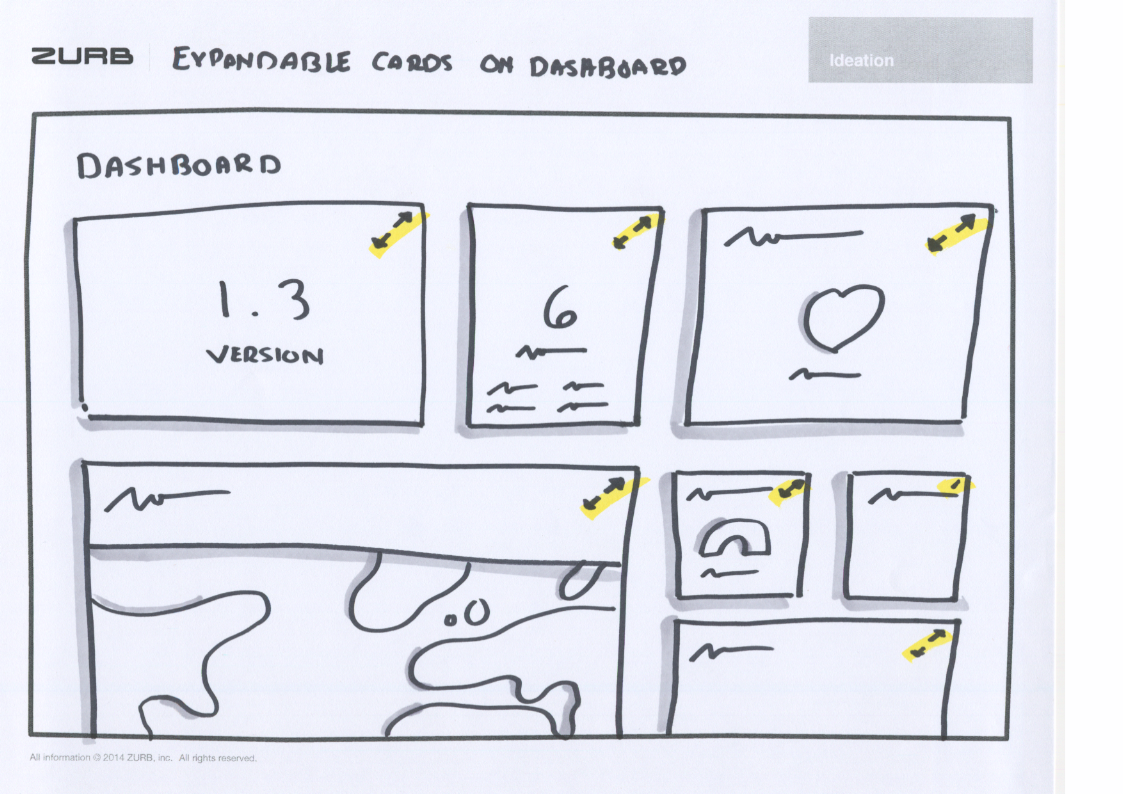 ZURB
EXPANDABLE CARDS ON DASHBOARD
Ideation
DASHBOARD
1.3
VERSION
6
All information © 2014 ZURB, inc. All rights reserved.